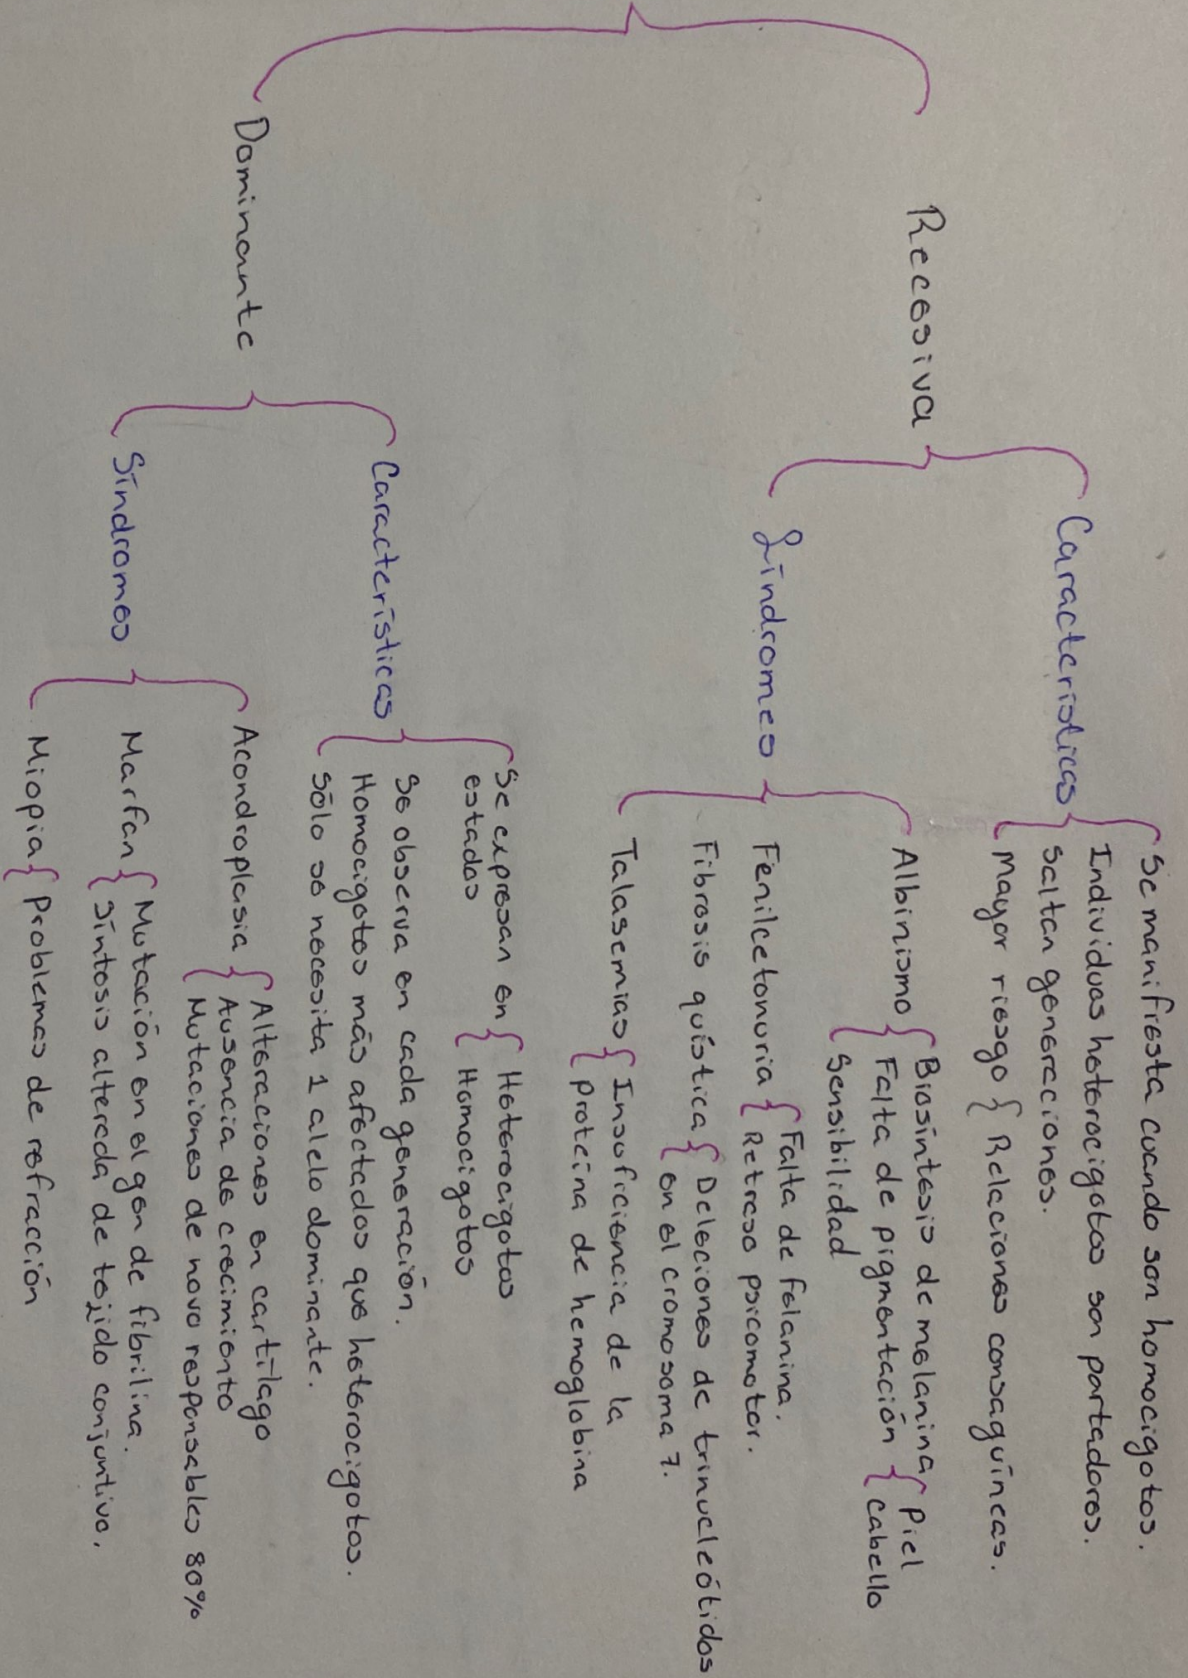 Recesiva
Características
Se manifiesta cuando son homocigotos.
Individuos heterocigotos son portadores.
Saltan generaciones.
Mayor riesgo
Relaciones consaguíneas.
Síndromes
Albinismo
Biosíntesis de melanina
Falta de pigmentación
Piel
Cabello
Sensibilidad
Fenilcetonuria
Falta de felanina.
Retraso psicomotor.
Fibrosis quística
Deleciones de trinucleótidos
en el cromosoma 7.
Talasemias
Insuficiencia de la
proteína de hemoglobina
Dominante
Características
Se expresan en
estados
Heterocigotos
Homocigotos
Se observa en cada generación.
Homocigotos más afectados que heterocigotos.
Sólo se necesita 1 alelo dominante.
Síndromes
Acondroplasia
Alteraciones en cartílago
Ausencia de crecimiento
Mutaciones de novo responsables 80%
Marfan
Mutación en el gen de fibrilina.
Síntesis alterada de tejido conjuntivo.
Miopia
Problemas de refracción